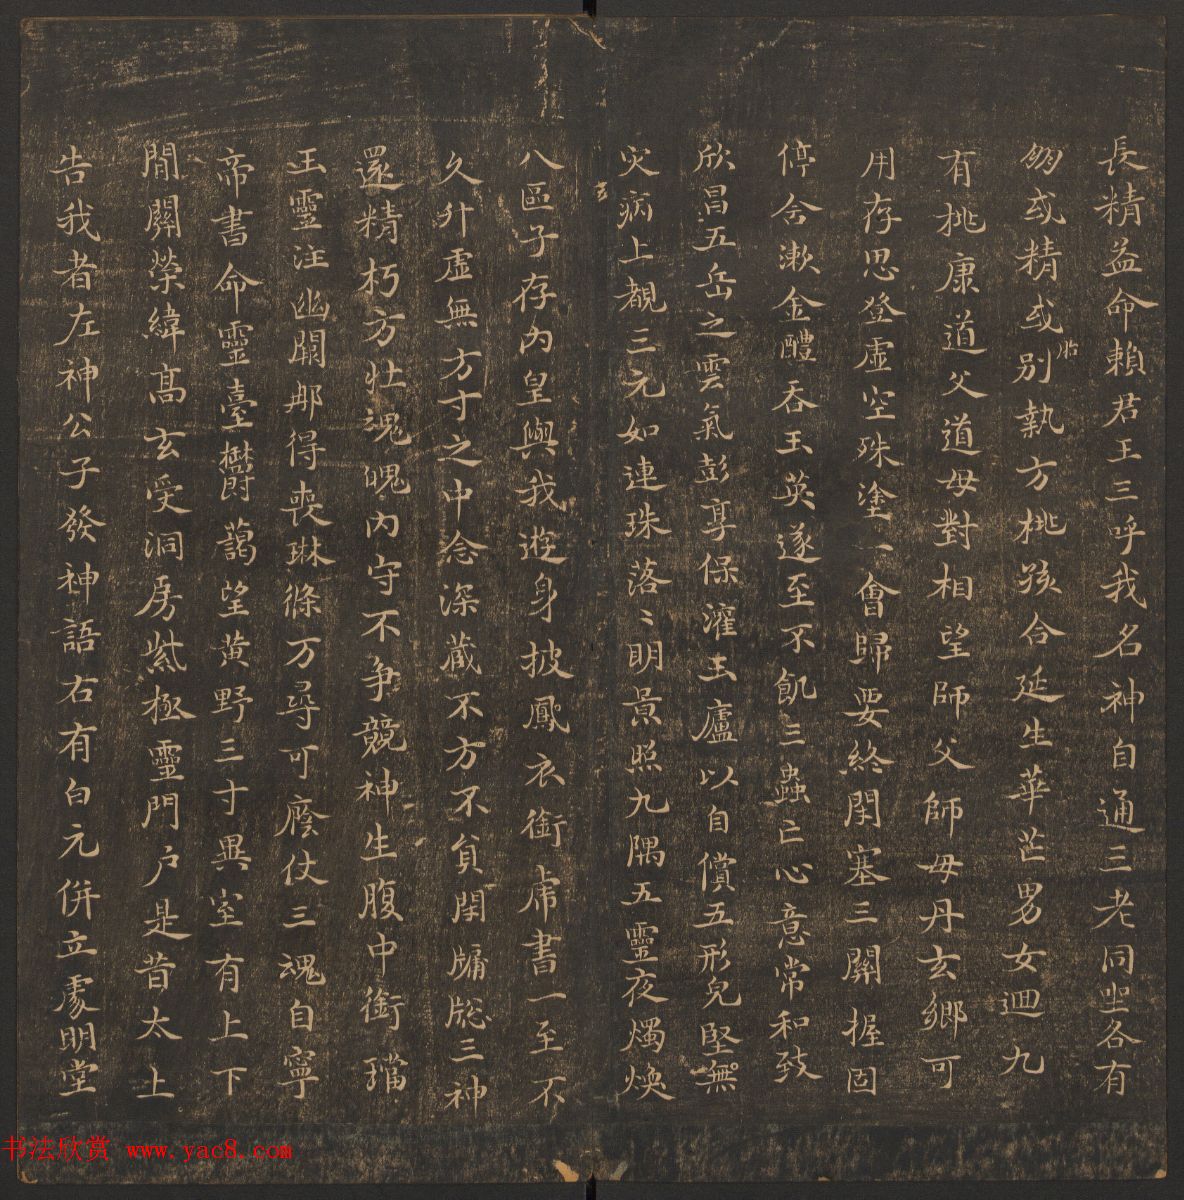 長精益命賴君王三呼我名神自通三老同坐各有
朋或精或胎別執方桃孩合延生華芒男女迴九
有桃康道父道母對相望師父師母丹玄鄉可
用存思登虛空殊塗一會歸要終閉塞三關握固
停含漱金醴吞玉英遂至不飢三蟲亡心意常和致
欣昌五岳之雲氣彭享保灌玉廬以自償五形皃堅無
灾病上覩三元如連珠落〻明景照九隅五靈夜燭煥
八區子存内皇與我遊身披鳳衣銜虎書一至不
久升虛無方寸之中念深藏不方不負閉牖牕三神
還精朽方壯魂魄内守不爭競神生腹中銜璫
玉靈注幽闕那得喪琳條万尋可廕仗三魂自寧
帝書命靈臺鬱藹望黃野三寸異室有上下
閒關榮緯高玄受洞房紫極靈門戶是昔太上
告我者左神公子發神語右有白元併立處明堂
玄
书法欣赏 www.yac8.com